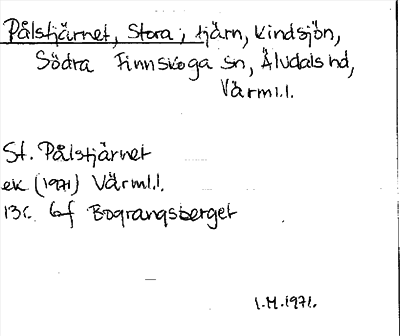 Pålstjärnet, Stora, tjärn, Kindsjön,
Södra Finnskoga sn, Älvdals hd,
Värml.
St. Pålstjärnet
ek (1971) Värml.
13c 6f Bograngsberget
I.M. 1971.